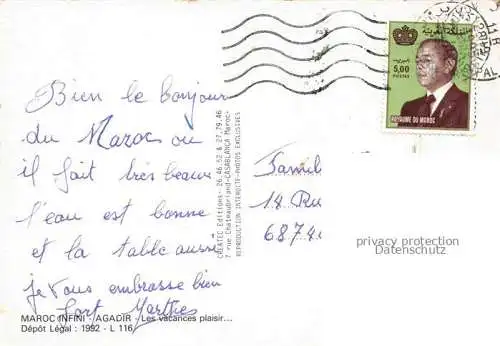 Bien le bonjour
du Maroc ou
il fait très beau
l'eau est bonne
et la table aussi
je vous embrasse bien
fort Marthes
MAROC INFINI - AGADIR - Les vacances plaisir...
Dépôt Légal : 1992 - L 116
CREATEC Editions - 26.46.52 & 27.79.46
7 rue Chateaubriand-CASABLANCA Maroc-
REPRODUCTION INTERDITE-PHOTOS EXCLUSIVES
المملكة المغربية
5,00
POSTES
ROYAUME DU MAROC
Famil
18 Ru
6874
privacy protection
Datenschutz